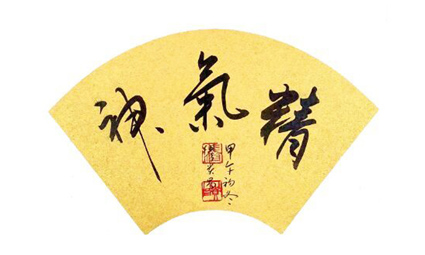 精氣神
甲午初冬